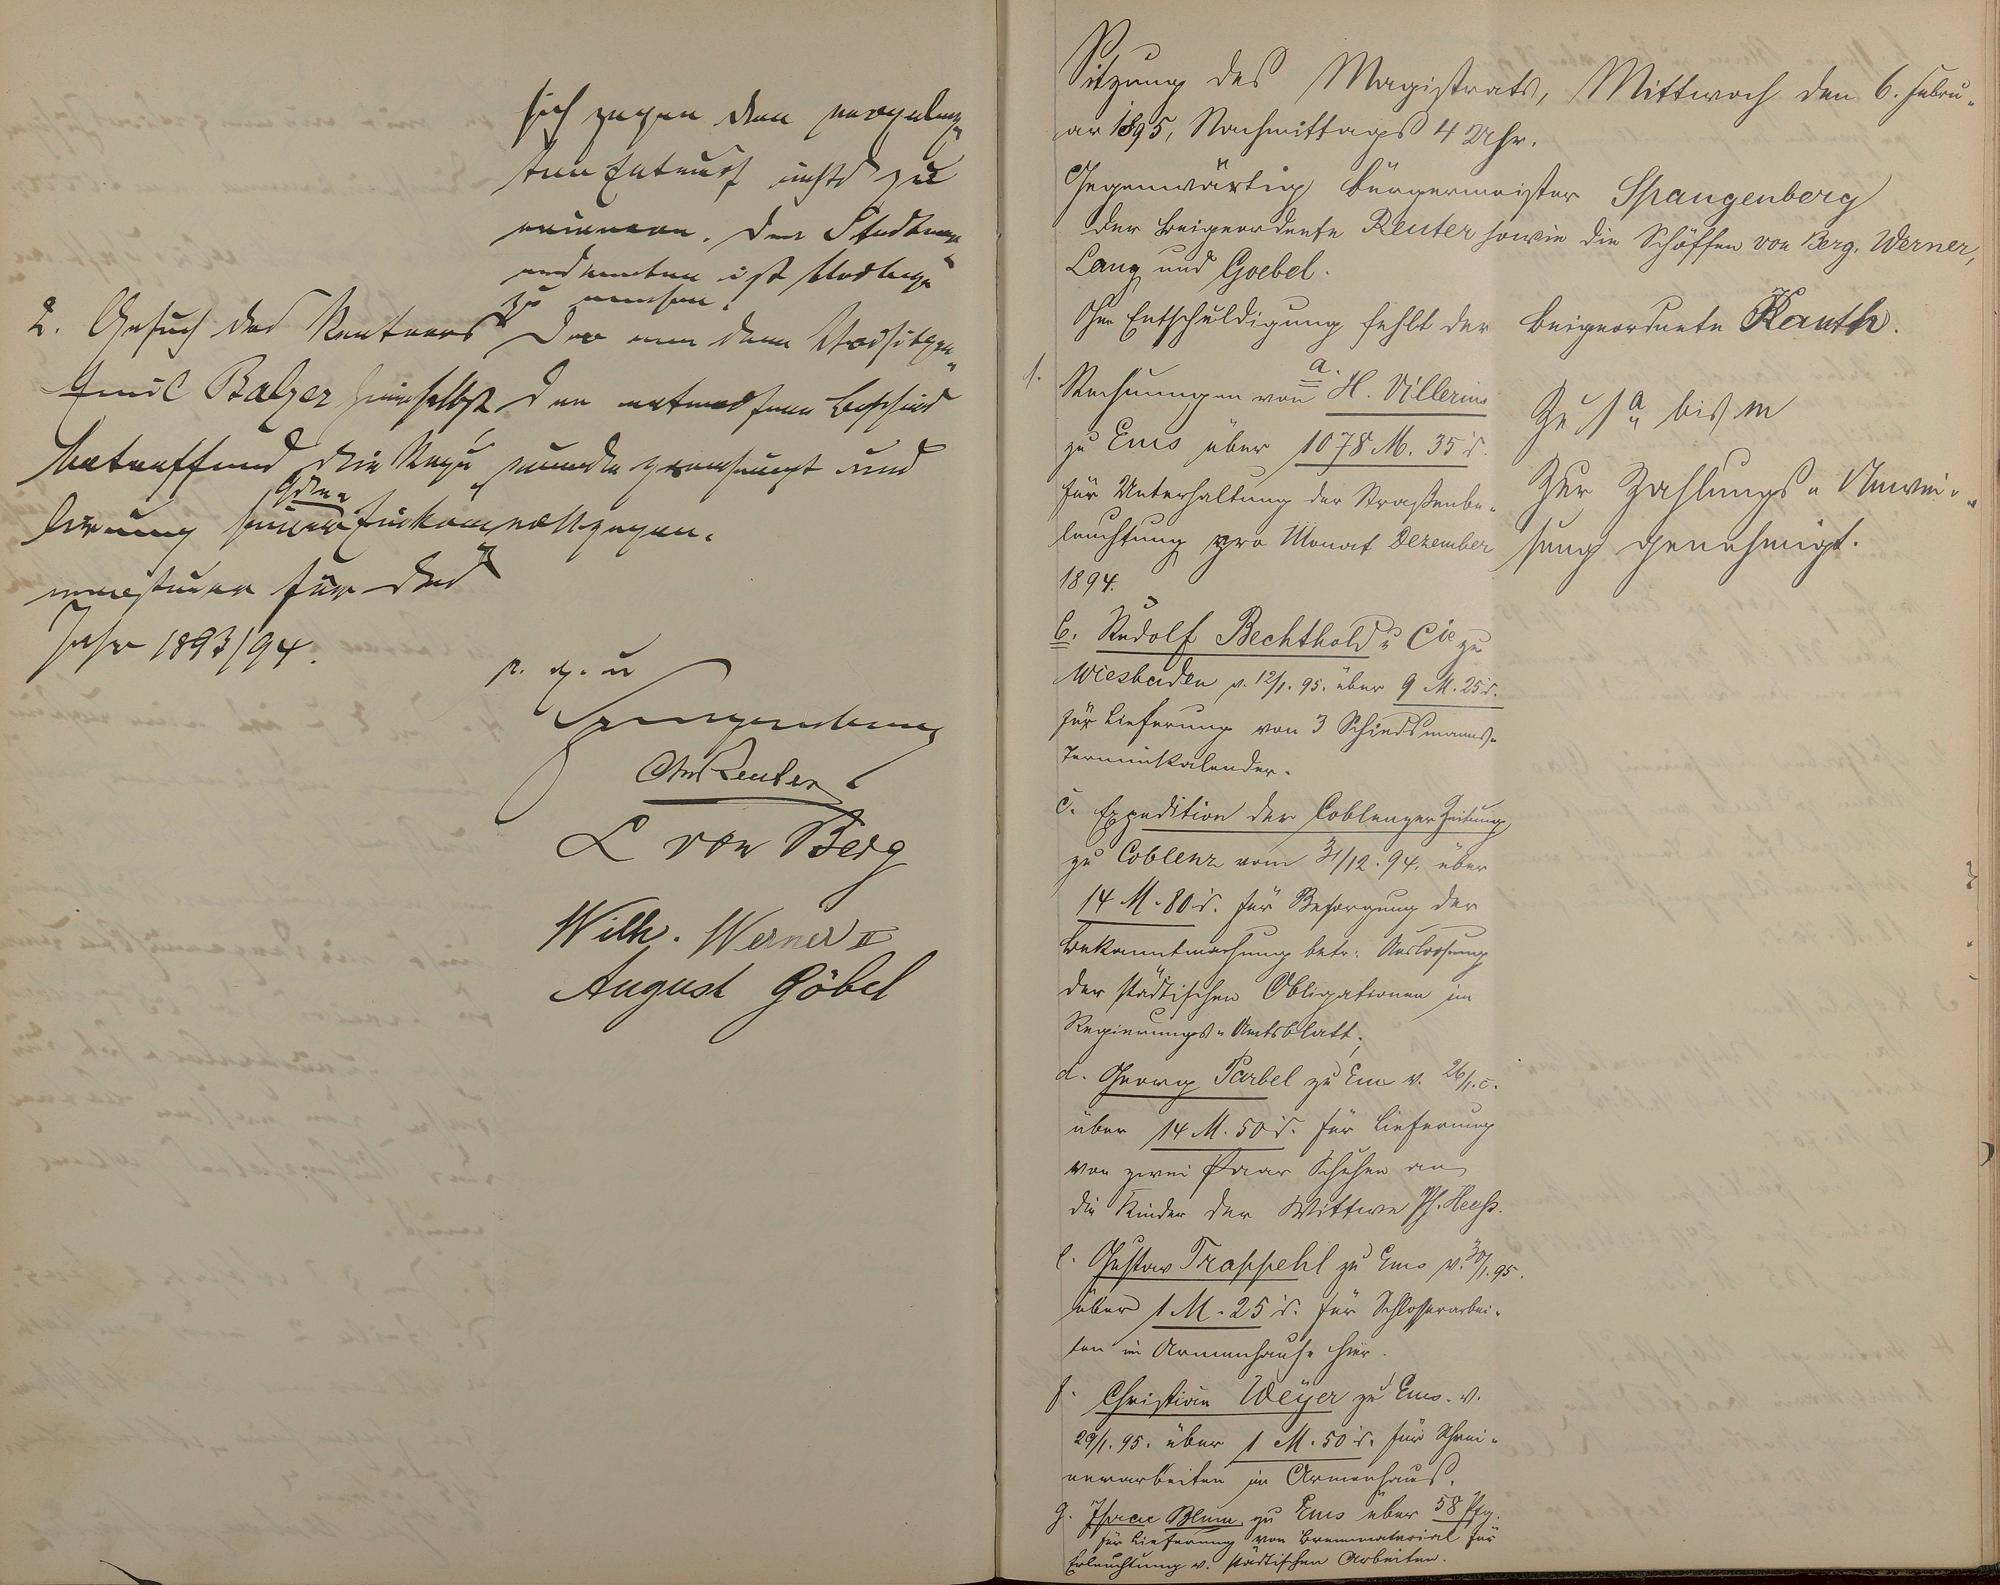 sich gegen den vorgeleg-
ten Entwurf nichts zu
erinnern. Der Stadtver-
ordneten ist Vorlage
zu machen.
2. Gesuch des Rentners
Emil Balzer hierselbst
betreffend die Regu-
lirung seiner Einkom-
mensteuer für das
Jahr 1893/94.
Der von dem Vorsitzen-
den entworfene Bescheid
wurde genehmigt und
vollzogen.
v. g. u
Spangenberg
Chr Reuter
L von Berg
Wilh. Werner II
August Göbel
Sitzung des Magistrats, Mittwoch den 6. Febru-
ar 1895, Nachmittags 4 Uhr.
Gegenwärtig Bürgermeister Spangenberg
der Beigeordnete Reuter sowie die Schöffen von Berg, Werner,
Lang und Goebel.
Ohne Entschuldigung fehlt der Beigeordnete Kauth.
1. Rechnungen von a. H. Villerius
zu Ems über 1078 M. 35 d.
für Unterhaltung der Straßenbe-
leuchtung pro Monat Dezember
1894.
Zu 1 a bis m
Zur Zahlungs-Anwei-
sung genehmigt.
b. Rudolf Bechthold u Cie zu
Wiesbaden v. 12/1. 95. über 9 M. 25 d.
für Lieferung von 3 Schiedsmanns-
Terminkalender.
c. Expedition der Coblenzer Zeitung
zu Coblenz vom 31/12. 94. über
14 M. 80 d. für Besorgung der
Bekanntmachung betr. Ausloosung
der städtischen Obligationen im
Regierungs-Amtsblatt.
d. Georg Pabel zu Ems v. 26/1. c.
über 14 M. 50 d. für Lieferung
von zwei Paar Schuhen an
die Kinder der Wittwe Ph.
e. Gustav Trappehl zu Ems v. 30/1. 95.
über 1 M. 25 d. für Schlosserarbei-
ten im Armenhause hier.
f. Christian Weyer zu Ems. v.
29/1. 95. über 1 M. 50 d. für Schrei-
nerarbeiten im Armenhaus.
g. Isaac Blum zu Ems über 58 Pfg.
für Lieferung von Brennmaterial für
Erleuchtung v. städtischen Arbeiten.